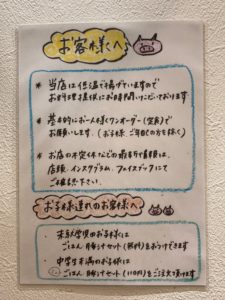 お客様へ♪
* 当店は低温で揚げていますので
お料理提供にお時間いただいております
* 基本的にお一人様ワンオーダー(定食)で
お願いします。(お子様、ご年配の方を除く)
* お店の不定休などの最新情報は、
店頭、インスタグラム、フェイスブックにて
ご確認下さい。
お子様連れのお客様へ
・未就学児のお子様には
ごはん 豚汁セット(無料)をおつけできます
・中学生未満のお子様には
ごはん 豚汁セット(110円)をご注文頂けます